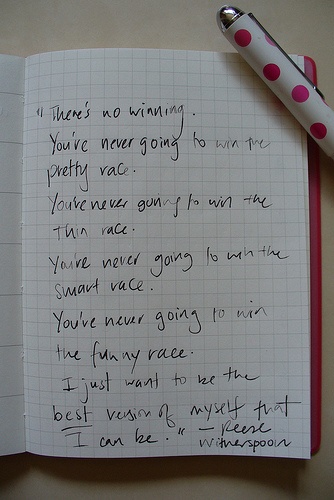 "There's no winning.
You've never going to win the
pretty race.
You're never going to win the
thin race.
You're never going to win the
smart race.
You've never going to win
the funny race.
I just want to be the
best version of myself that
I can be." – Reese
Witherspoon